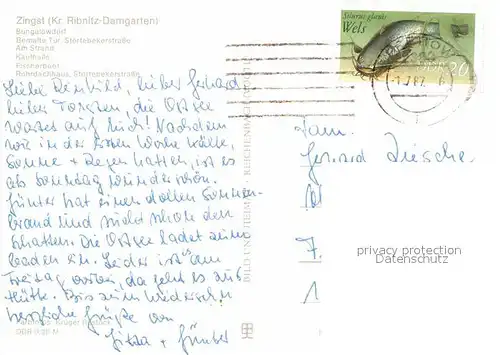 Zingst (Kr. Ribnitz-Damgarten)
Bungalowdorf
Bemalte Tür Störtebekerstraße
Am Strand
Kaufhalle
Fischerboot
Rohrdachhaus, Störtebekerstraße
Silurus glanis
Wels
DDR 20
Liebe lieber Gerhard
lieber Torsten, die Ostsee
wartet auf Euch! Nachdem
wir in der ersten Woche Kälte,
Sonne + Regen hatten, ist es
ab Sonntag wunderschön.
Günter hat einen tollen Sonnen-
brand und sucht schon den
Schatten. Die Ostsee ladet zum
baden ein. Leider ist am
Freitag vorbei, da geht es aus
Hütte. Bis zum Wiedersehn
herzliche Grüße von
+ Günter
Fam.
Gerhard
7.
1
BILD UND HEIMAT REICHENBACH
privacy protection
Datenschutz
Krüger
DDR M